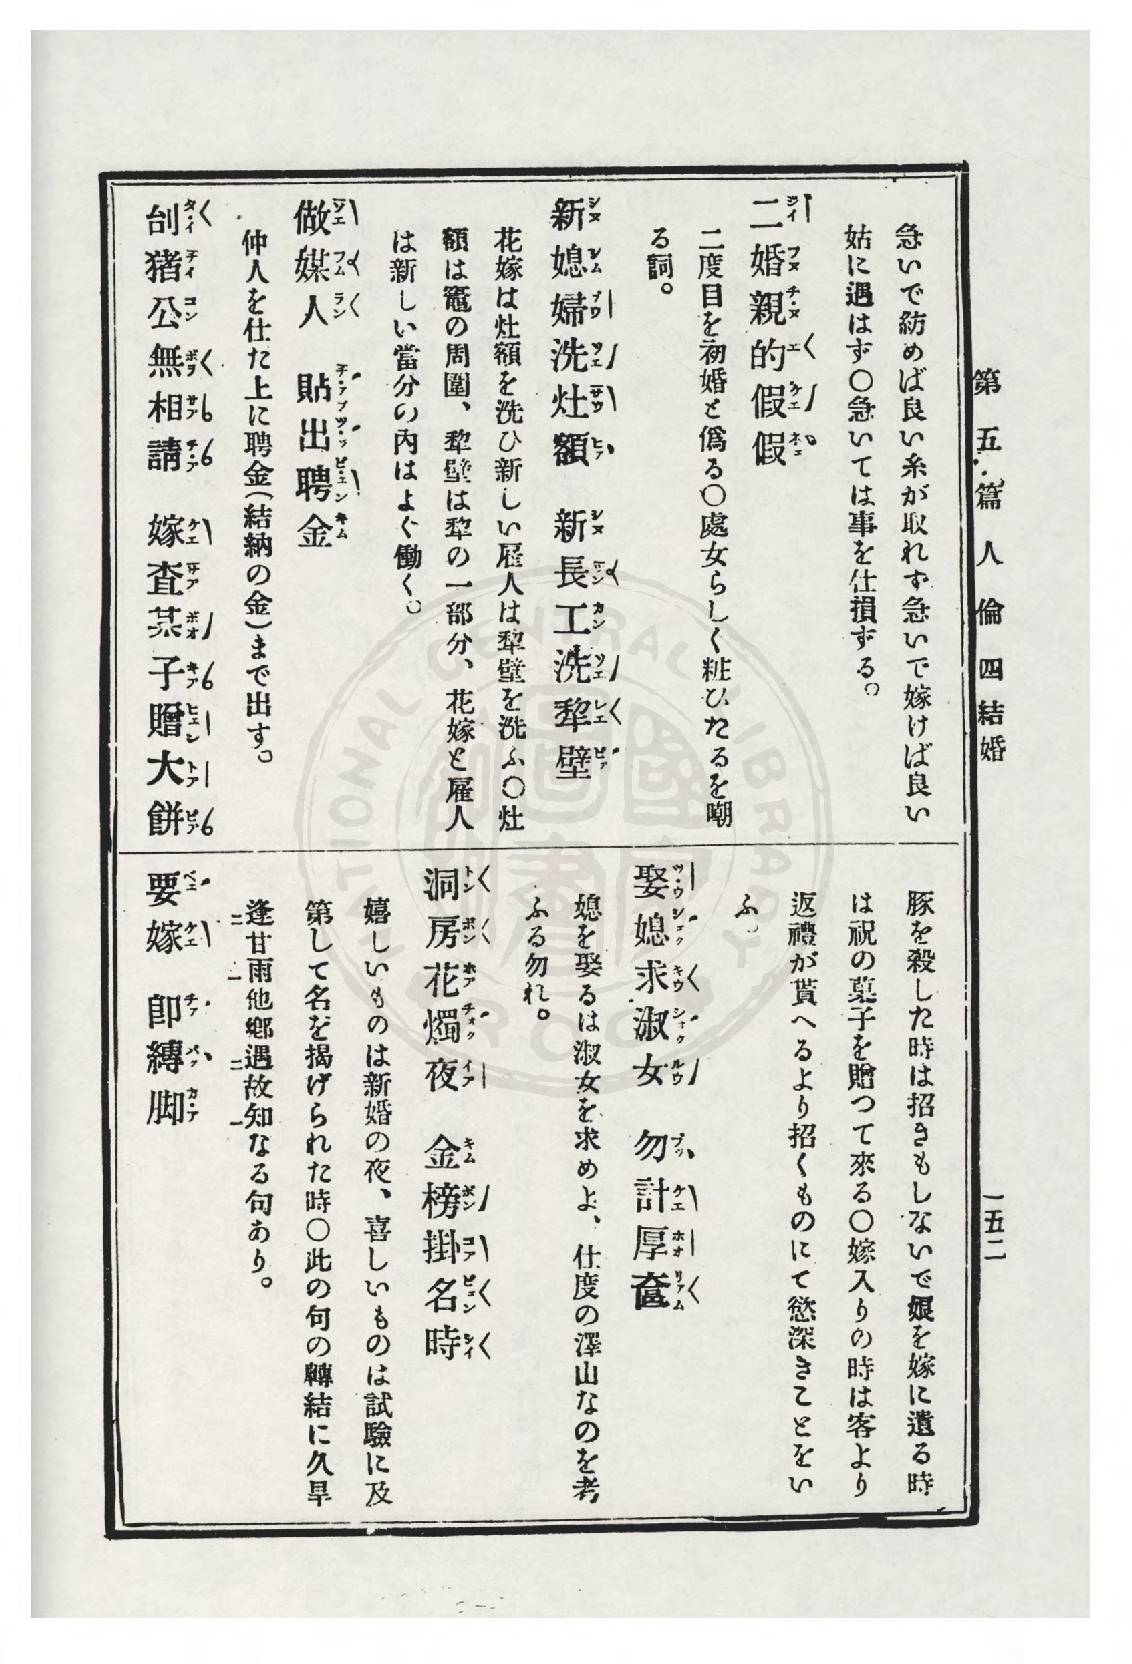 第五篇 人倫 四結婚
一五二
急いで紡めば良い糸が取れず急いで嫁けば良い
姑に遇はず〇急いては事を仕損ずる。
二婚親的假假
二度目を初婚と僞る〇處女らしく粧ひたるを嘲
る詞。
新媳婦洗灶額 新長工洗犂壁
花嫁は灶額を洗ひ新しい雇人は犂壁を洗ふ〇灶
額は竈の周圍、犂壁は犂の一部分、花嫁と雇人
は新しい當分の內はよく働く。
做媒人 貼出聘金
仲人を仕た上に聘金(結納の金)まで出す。
刣猪公無相請 嫁査某子贈大餅
豚を殺した時は招きもしないで娘を嫁に遺る時
は祝の菓子を贈つて來る〇嫁入りの時は客より
返禮が貰へるより招くものにて慾深きことをい
ふ。
娶媳求淑女 勿計厚奩
媳を娶るは淑女を求めよ、仕度の澤山なのを考
ふる勿れ。
洞房花燭夜 金榜掛名時
嬉しいものは新婚の夜、喜しいものは試驗に及
第して名を揭げられた時〇此の句の轉結に久旱
逢甘雨他鄕遇故知なる句あり。
要嫁 卽縛脚
NATIONAL CENTRAL LIBRARY
R.O.C.